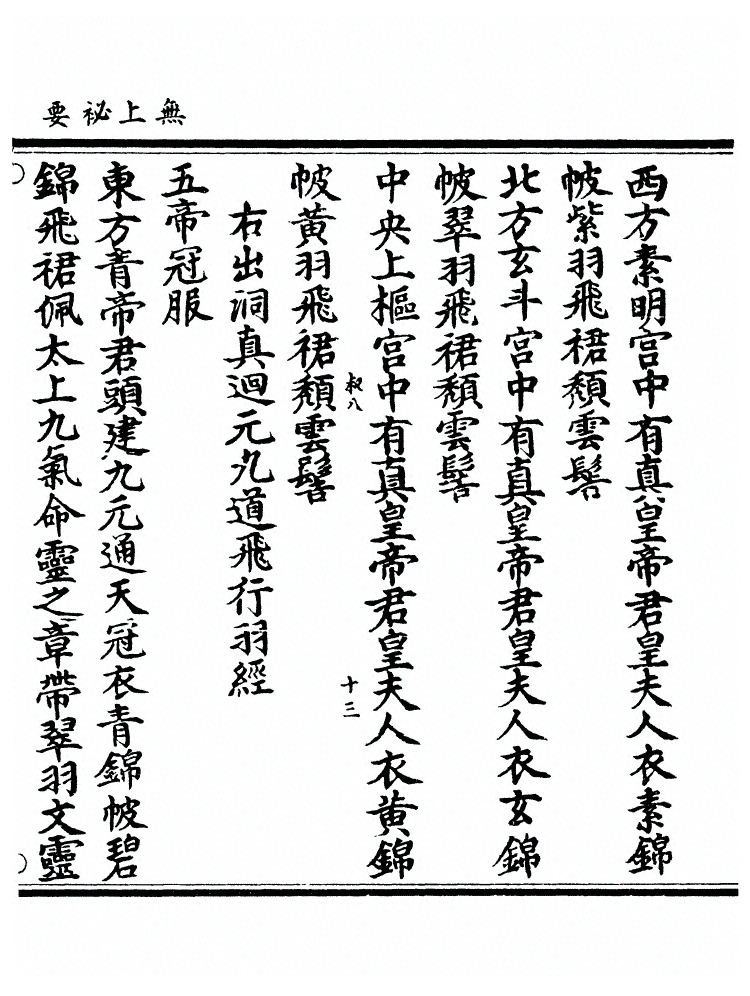 無上祕要
西方素明宮中有真皇帝君皇夫人衣素錦
帔紫羽飛裙頹雲髻
北方玄斗宮中有真皇帝君皇夫人衣玄錦
帔翠羽飛裙頹雲髻
中央上樞宮中有真皇帝君皇夫人衣黃錦
叔八
十三
帔黃羽飛裙頹雲髻
右出洞真迴元九道飛行羽經
五帝冠服
東方青帝君頭建九元通天冠衣青錦帔碧
錦飛裙佩太上九氣命靈之章帶翠羽文靈